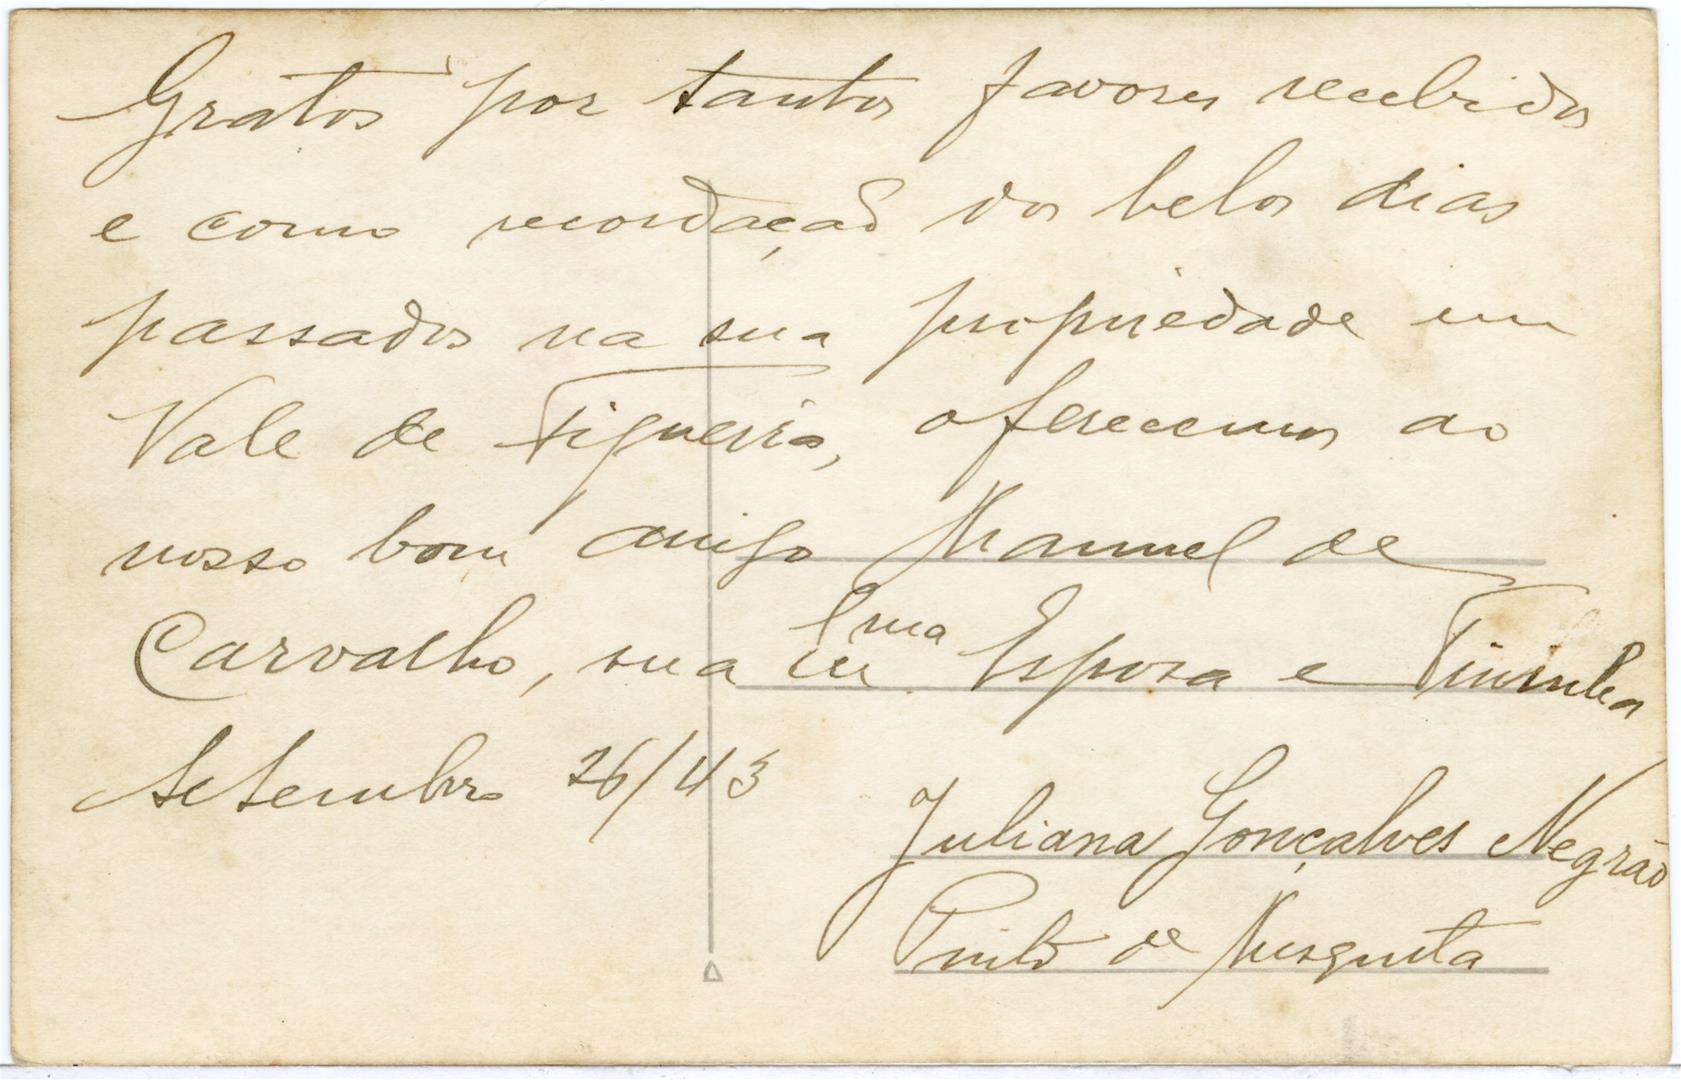 Gratos por tantos favores recebidos
e como recordação dos belos dias
passados na sua propriedade em
Vale de Figueira, oferecemos ao
nosso bom amigo Manuel de
Carvalho, sua Exma Esposa e
Setembro 26/43
Juliana Gonçalves Negrão
Pinto de Mesquita